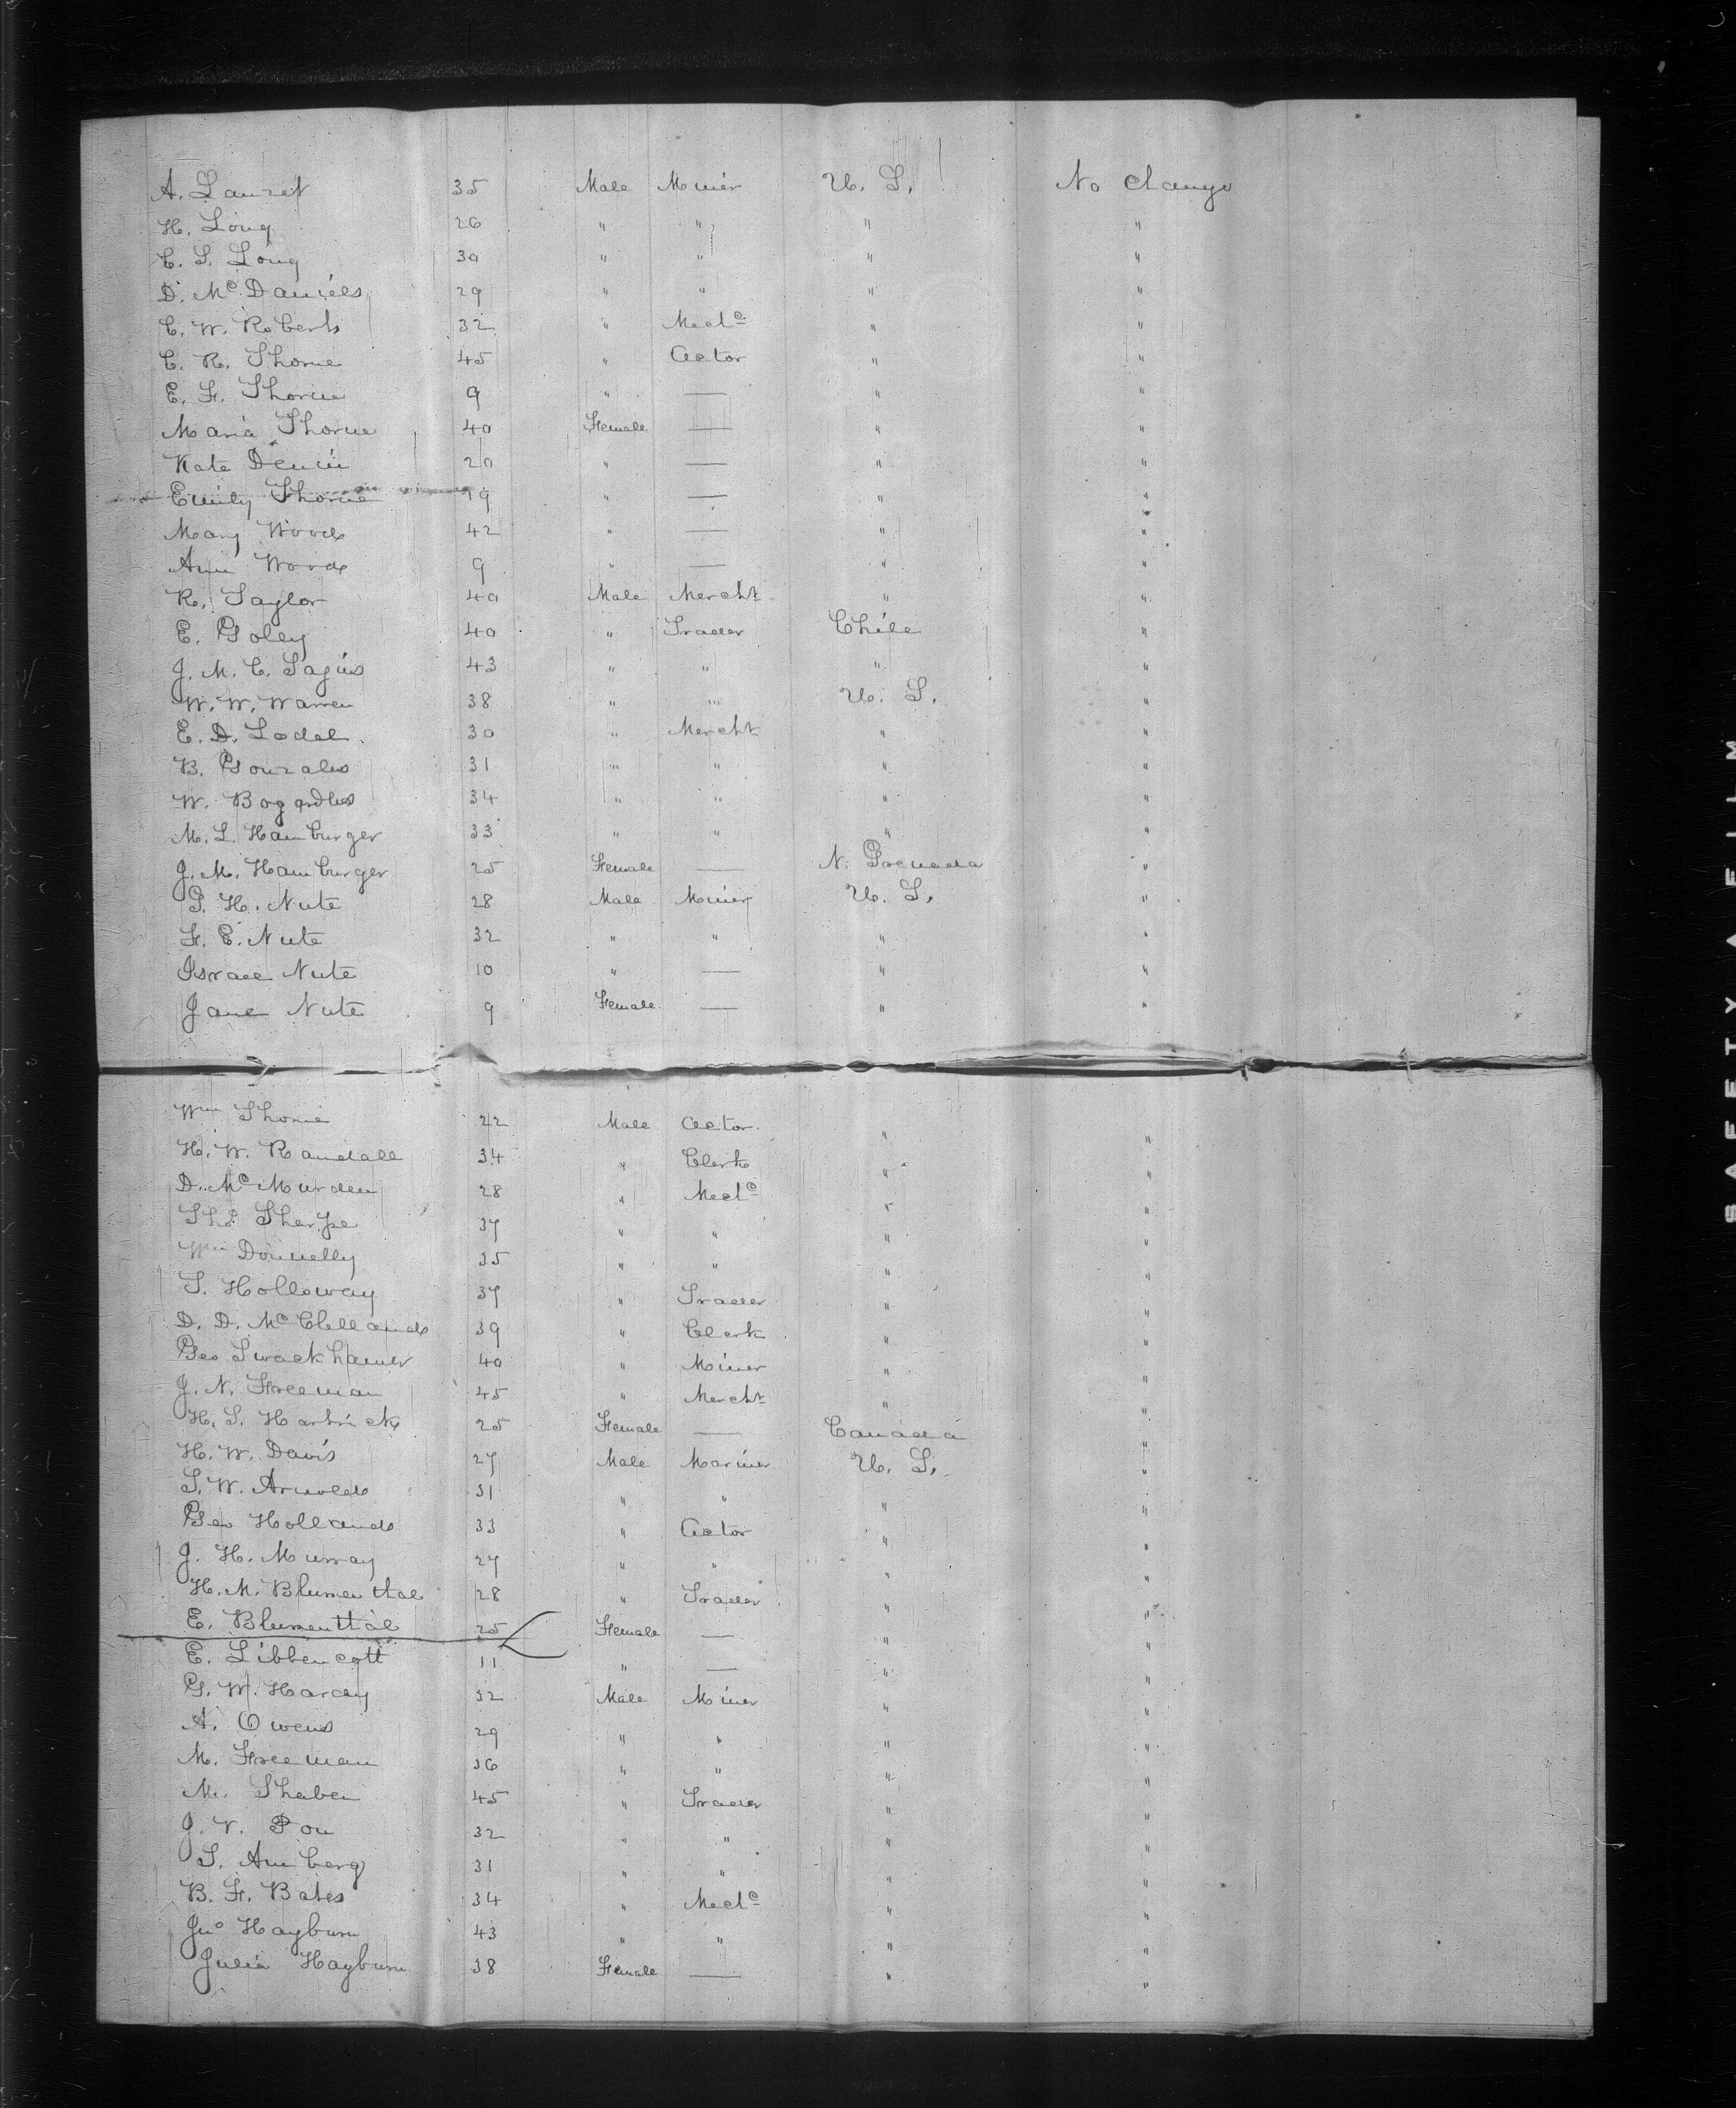 A. Lauret 35 Male Miner U. S. No Change
H. Long 26 " " " "
C. S. Long 30 " " " "
D. McDaniels 29 " " " "
C. W. Roberts 32 " Mechc " "
C. R. Thorne 45 " Actor " "
E. F. Thorne 9 " — " "
Maria Thorne 40 Female — " "
Kate Denin 20 " — " "
Emily Thorne 19 " — " "
Mary Woods 42 " — " "
Ann Woods 9 " — " "
R. Taylor 40 Male Mercht " "
E. Goley 40 " Trader Chile "
J. M. C. 43 " " " "
W. W. Warren 38 " " U. S. "
E. D. Lodel 30 " Mercht " "
B. Gonzales 31 " " " "
W. Bogardus 34 " " " "
M. L. Hamburger 33 " " " "
J. M. Hamburger 25 Female — N. Grenada "
G. H. Nute 28 Male Miner U. S. "
F. E. Nute 32 " " " "
Israel Nute 10 " — " "
Jane Nute 9 Female — " "
Wm Thorne 22 Male Actor " "
H. W. Randall 34 " Clerk " "
D. McMurden 28 " Mechc " "
Thos Sharpe 37 " " " "
Wm Donnelly 35 " " " "
S. Holloway 37 " Trader " "
D. D. McClellands 39 " Clerk " "
Geo Swackhamer 40 " Miner " "
J. N. Freeman 45 " Mercht " "
H. S. 25 Female — Canada "
H. W. Davis 27 Male Mariner U. S. "
S. W. Arnolds 31 " " " "
Geo Hollands 33 " Actor " "
J. H. Murray 27 " " " "
H. M. Blumenthal 28 " Trader " "
E. Blumenthal 25 Female — " "
E. Libbencott 11 " — " "
G. W. Harcey 32 Male Miner " "
A. Owens 29 " " " "
M. Freeman 36 " " " "
M. Thaben 45 " Trader " "
J. V. 32 " " " "
S. Amberg 31 " " " "
B. F. Bates 34 " Mechc " "
Jno Hayburn 43 " " " "
Julia Hayburn 38 Female — " "
SAFETY FILM